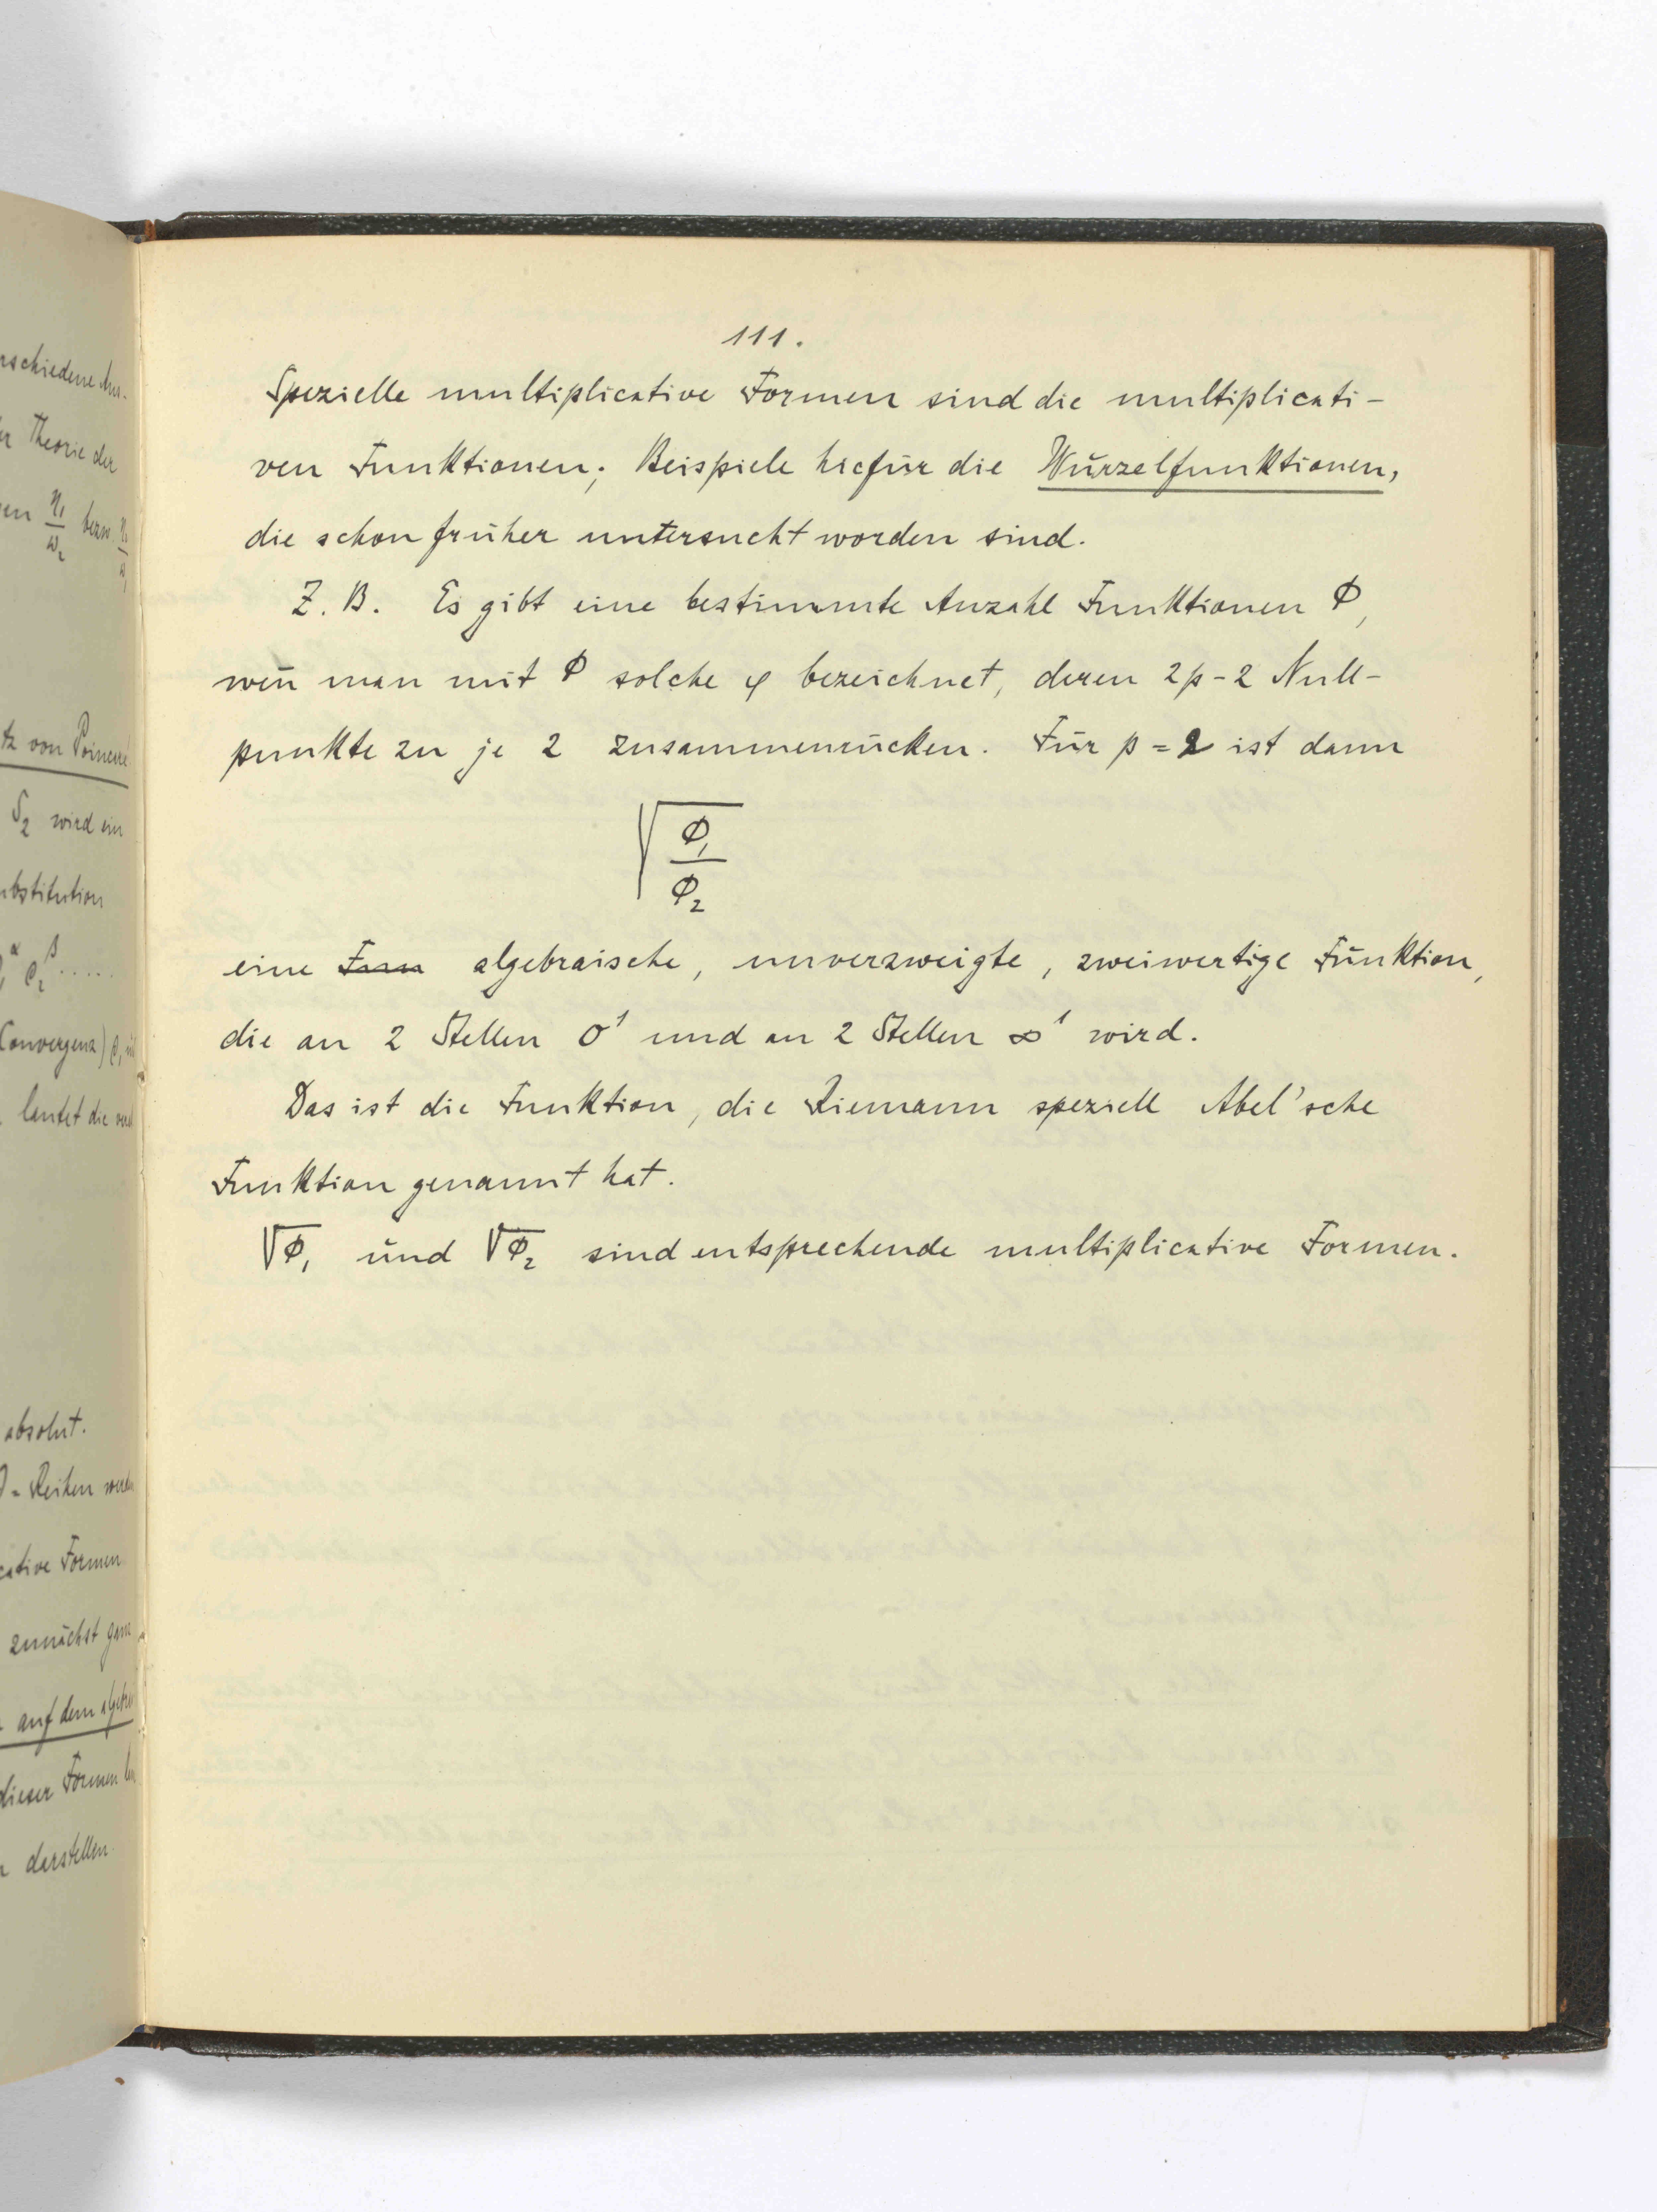 rschiedene Aus-
er Theorie der
en η₁/ω₂ bezw. η₁/ω₁
tz von Poincaré
S₂ wird ein
ubstitution
Convergenz)
lautet die
absolut.
Reihen werden
cative Formen
zunächst ganz
auf dem algebr
dieser Formen
darstellen.
111.
Spezielle multiplicative Formen sind die multiplicati-
ven Funktionen; Beispiele hiefür die Wurzelfunktionen,
die schon früher untersucht worden sind.
Z. B. Es gibt eine bestimmte Anzahl Funktionen Φ,
weñ man mit Φ solche φ bezeichnet, deren 2p-2 Null-
punkte zu je 2 zusammenrücken. Für p = 2 ist dann
√(Φ₁/Φ₂)
eine Form algebraische, unverzweigte, zweiwertige Funktion,
die an 2 Stellen 0¹ und an 2 Stellen ∞¹ wird.
Das ist die Funktion, die Riemann speziell Abel'sche
Funktion genannt hat.
√Φ₁ und √Φ₂ sind entsprechende multiplicative Formen.